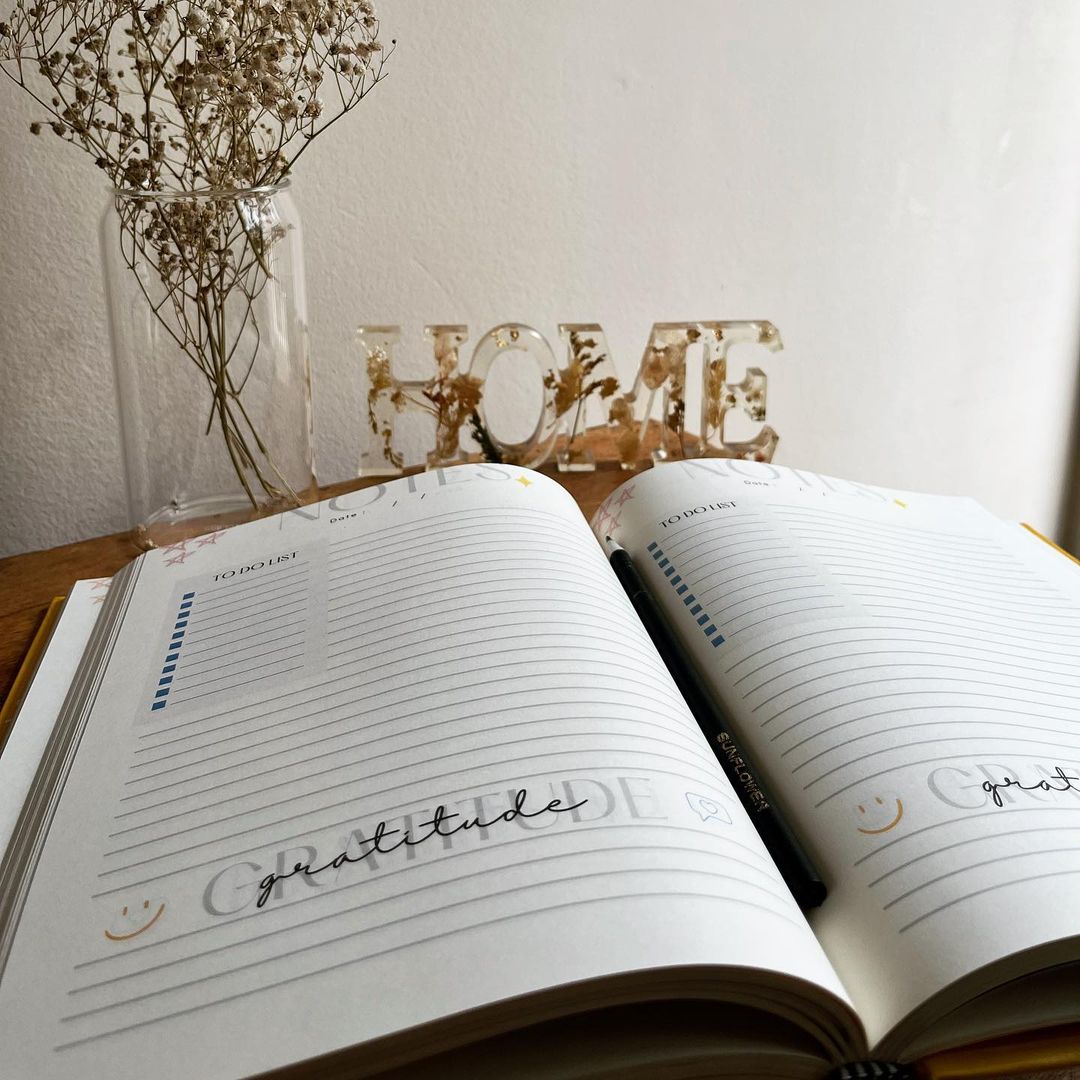 HOME
NOTES
Date : / /
TO DO LIST
GRATITUDE
gratitude
NOTES
Date : / /
TO DO LIST
SUNFLOWER
GRA
grat